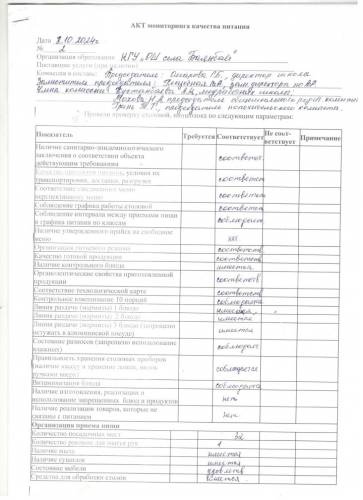 АКТ мониторинга качества питания
Дата 9.10.2024г
№ 2
Организация образования КГУ "ОШ села
Поставщик услуги (при наличии)
Комиссия в составе: Председатель: директор школа
Заместитель председателя: зам.директора по ВР
Члены комиссии медработник школы,
председатель попечительского комитета.
Провели проверку столовой, пищеблока по следующим параметрам:
Показатель Требуется Соответствует Не соответствует Примечание
Наличие санитарно-эпидемиологического
заключения о соответствии объекта
действующим требованиям соответст.
Качество продуктов питания, условия их
транспортировки, доставки, разгрузки соответст
Соответствие ежедневного меню
перспективному меню соответств
Соблюдение графика работы столовой соответст
Соблюдение интервала между приемами пищи
и графика питания по классам соблюдается
Наличие утвержденного прайса на свободное
меню нет
Организация питьевого режима соответств
Качество готовой продукции соответств
Наличие контрольного блюда имеется
Органолептические свойства приготовленной
продукции соответств
Соответствие технологической карте соответств
Контрольное взвешивание 10 порций соблюдается
Линия раздачи (мармиты) 1 блюдо имеется
Линия раздачи (мармиты) 2 блюдо имеется
Линия раздачи (мармиты) 3 блюдо (запрещено
остужать в алюминиевой посуде) имеется
Состояние разносов (запрещено использование
влажных) соблюдает
Правильность хранения столовых приборов
(наличие кассет и хранение ложек, вилок
ручками вверх) соблюдается
Витаминизация блюда соблюдается
Наличие изготовления, реализации и
использование запрещенных блюд и продуктов нет
Наличие реализации товаров, которые не
связаны с питанием нет
Организация приема пищи
Количество посадочных мест 32
Количество раковин для мытья рук 4
Наличие мыла имеется
Наличие сушилок имеется
Состояние мебели удовлетв
Средства для обработки столов имеется